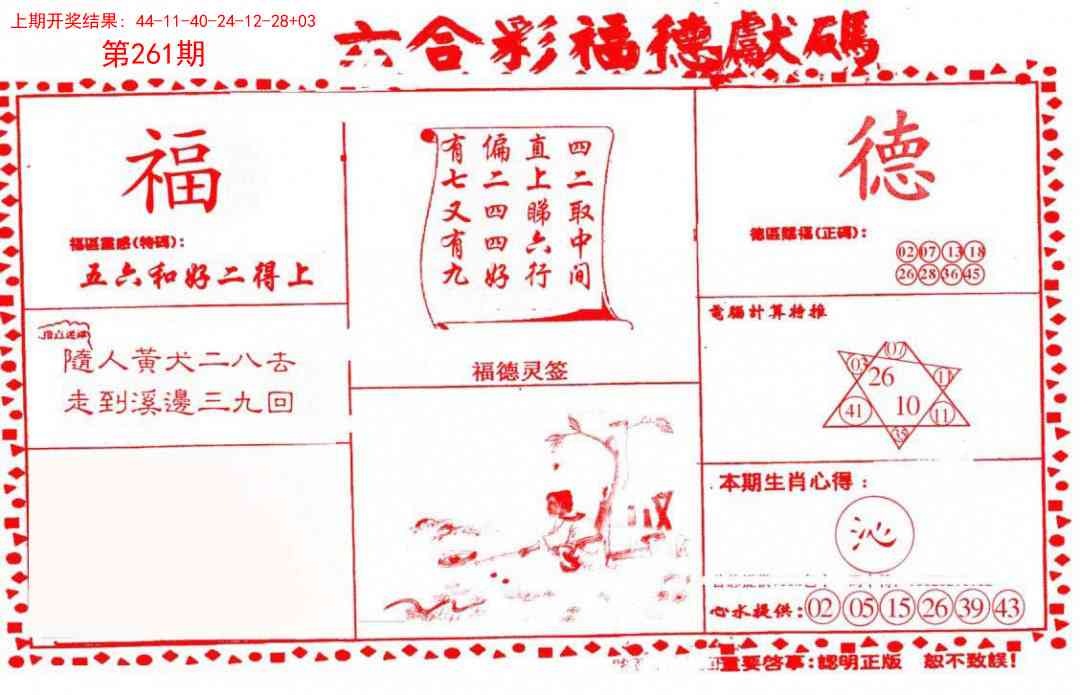 上期开奖结果: 44-11-40-24-12-28+03
第261期
六合彩福德獻碼
福
福區靈感(特碼):
五六和好二得上
隨人黃犬二八去
走到溪邊三九回
四二取中间
直上睇六行
偏二四四好
有七又有九
福德灵签
德
德區賜福(正碼):
02 07 13 18
26 28 36 45
電腦計算特推
07
03
26
11
41
10
11
本期生肖心得:
沁
心水提供: 02 05 15 26 39 43
重要啓事:認明正版 恕不致誤!